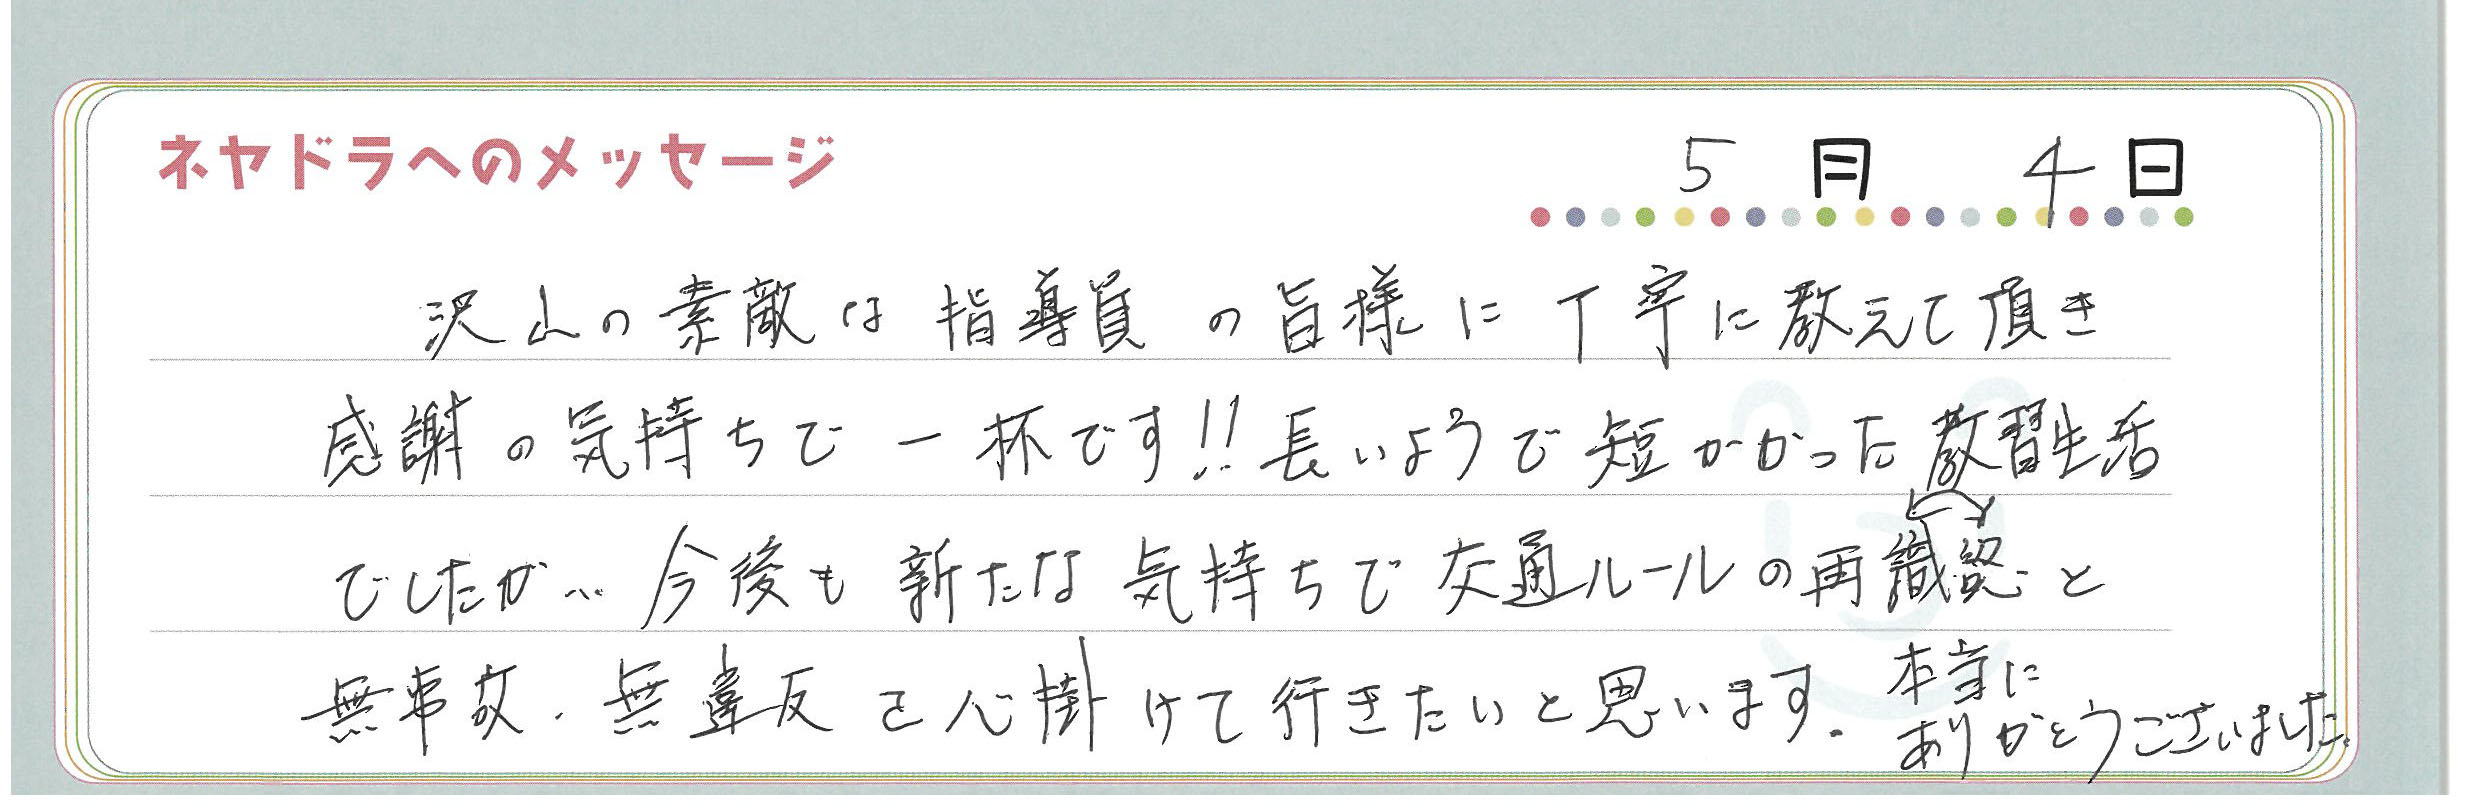 ネヤドラへのメッセージ
5月 4日
沢山の素敵な指導員の皆様に丁寧に教えて頂き
感謝の気持ちで一杯です!!長いようで短かかった教習生活
でしたが…今後も新たな気持ちで交通ルールの再識認と
無事故・無違反を心掛けて行きたいと思います。本当に
ありがとうございました。